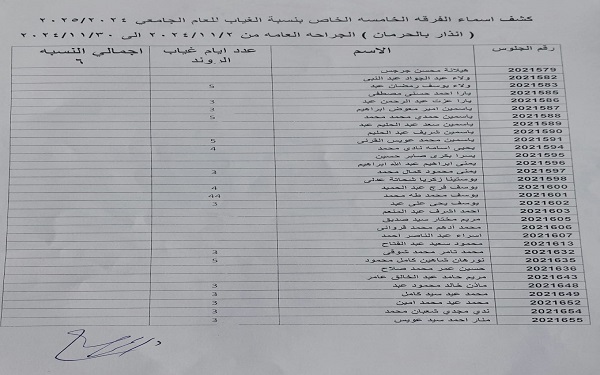 كشف اسماء الفرقه الخامسه الخاص بنسبة الغياب للعام الجامعي ٢٠٢٥/٢٠٢٤
( انذار بالحرمان ) الجراحه العامه من ٢٠٢٤/١١/٢ الى ٢٠٢٤/١١/٣٠
رقم الجلوس الاسم عدد ايام غياب الروند اجمالي النسبه ٦
2021579 هيلانة محسن جرجس
2021582 ولاء عبد الجواد عبد النبى
2021583 ولاء يوسف رمضان عبد 5
2021585 يارا احمد حسنى مصطفى
2021586 يارا عزت عبد الرحمن عبد 3
2021587 ياسمين امير معوض ابراهيم 3
2021588 ياسمين حمدي محمد محمد 5
2021589 ياسمين سعد عبد الحليم عبد
2021590 ياسمين شريف عبد الحليم
2021591 ياسمين محمد عويس القرنى 5
2021594 يحيى اسامه نادى محمد 4
2021595 يسرا بكرى صابر حسين
2021596 يمنى ابراهيم عبد الله ابراهيم
2021597 يمنى محمود كمال محمد 3
2021598 يوستينا زكريا شحاتة عدلى
2021600 يوسف فرج عبد الحميد 4
2021601 يوسف محمد طه محمد 44
2021602 يوسف يحى على عبد 3
2021603 احمد اشرف عبد المنعم
2021605 مريم مختار سيد صديق
2021606 محمد ادهم محمد فروانى
2021607 اسراء عبد الناصر احمد
2021613 محمود سعيد عبد الفتاح
2021632 محمد تامر محمد شوقى 3
2021635 نورهان شاهين كامل محمود 5
2021636 حسين عمر محمد صلاح
2021643 مريم حامد عبد الخالق عامر
2021648 مازن خالد محمود عبد 3
2021649 محمد عبد سيد كامل 3
2021652 محمد عبد محمد امين 3
2021654 ندى مجدي شعبان محمد 3
2021655 منار احمد سيد عويس 3